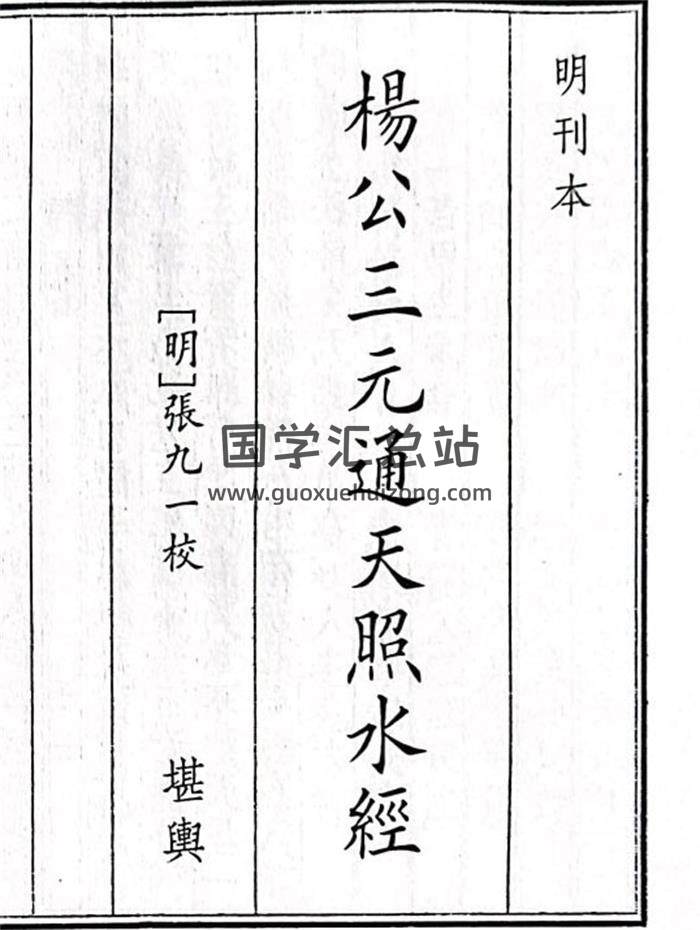 明刊本
楊公三元通天照水經
［明］張九一校
堪輿
国学汇总站
www.guoxuehuizong.com